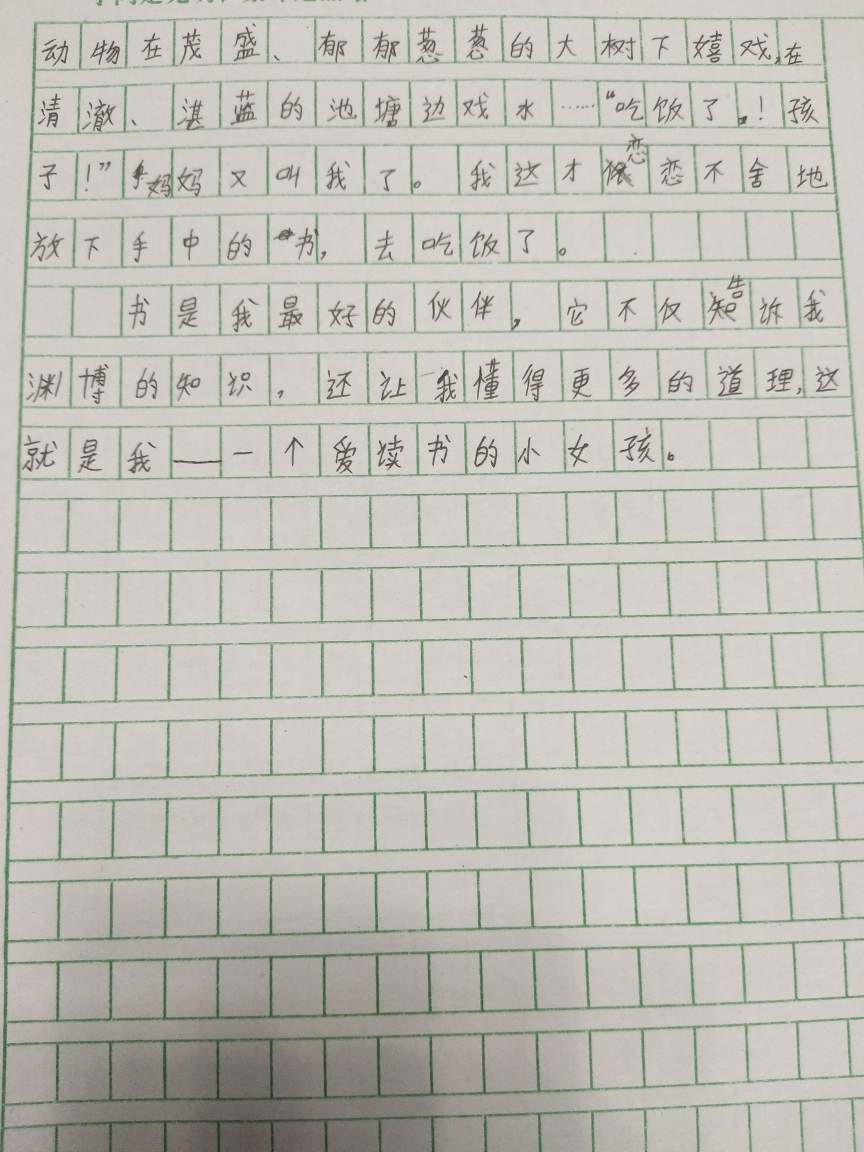 动物在茂盛、郁郁葱葱的大树下嬉戏,在
清澈、湛蓝的池塘边戏水……“吃饭了,!孩
子!”妈妈又叫我了。我这才恋恋不舍地
放下手中的书,去吃饭了。
书是我最好的伙伴,它不仅告诉我
渊博的知识,还让我懂得更多的道理,这
就是我——一个爱读书的小女孩。